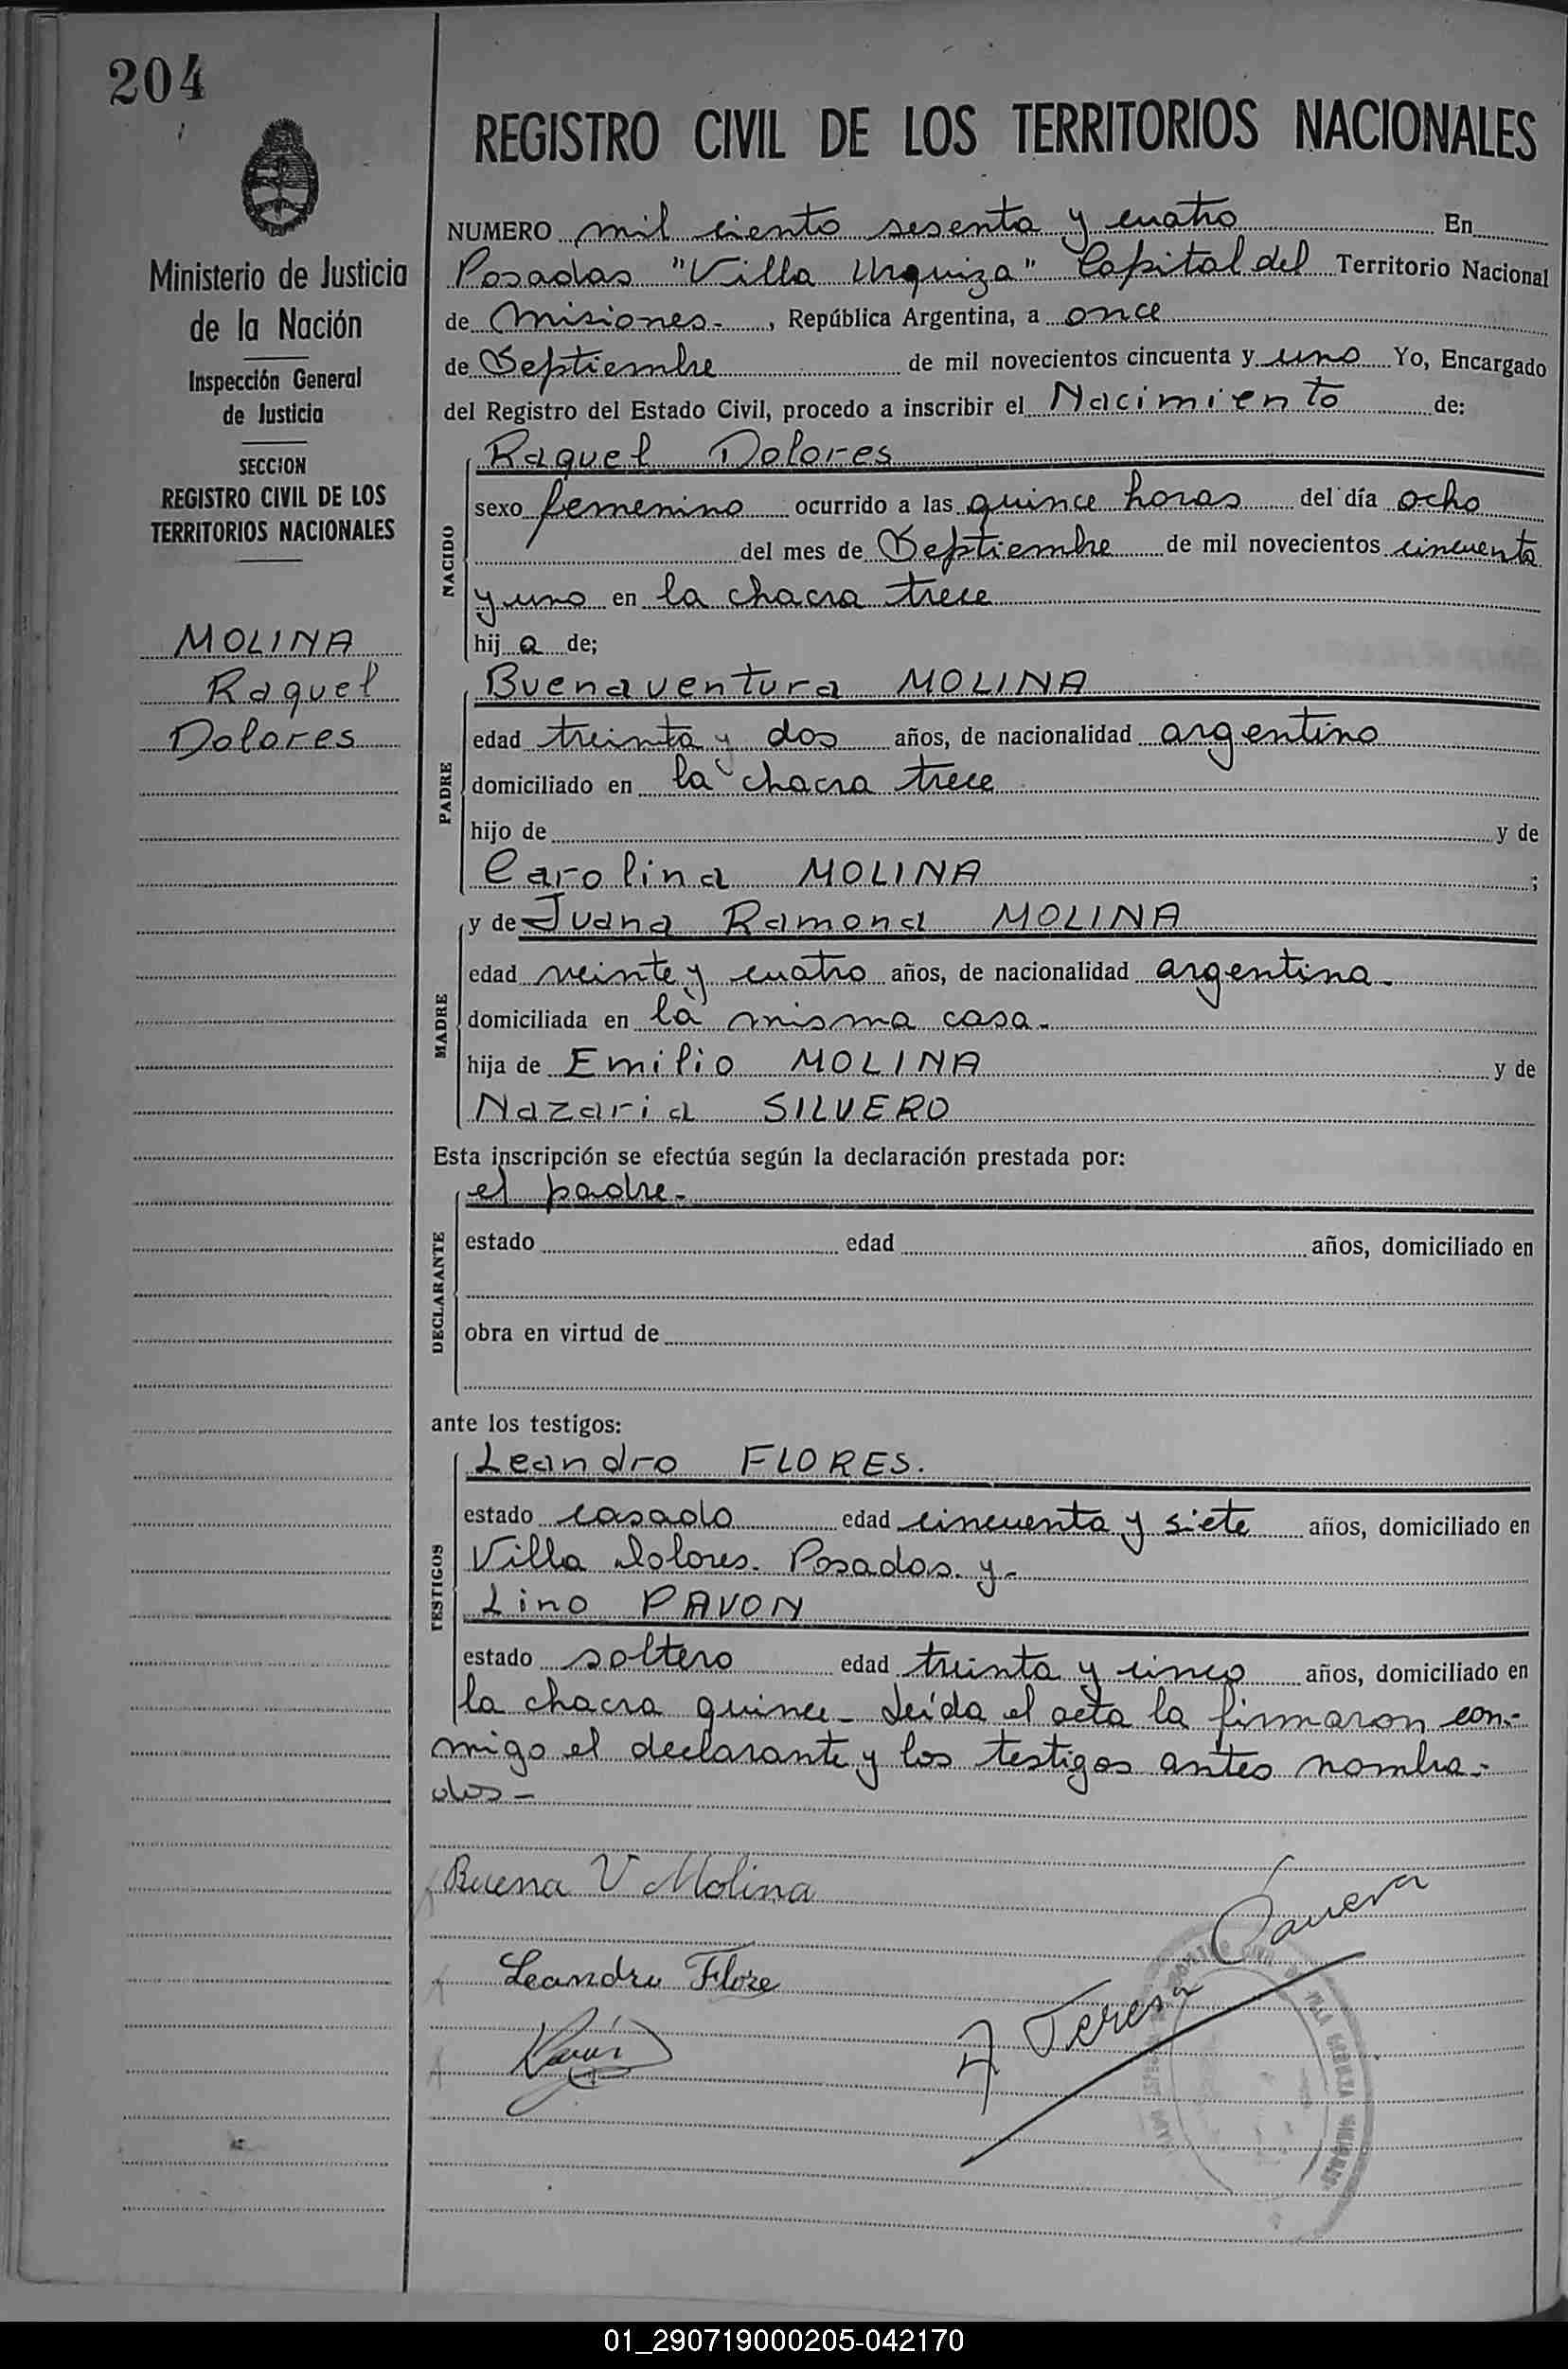 204
Ministerio de Justicia
de la Nación
Inspección General
de Justicia
SECCION
REGISTRO CIVIL DE LOS
TERRITORIOS NACIONALES
MOLINA
Raquel
Dolores
REGISTRO CIVIL DE LOS TERRITORIOS NACIONALES
NUMERO mil ciento sesenta y cuatro En
Posadas "Villa Urquiza" Capital del Territorio Nacional
de Misiones-, República Argentina, a once
de Septiembre de mil novecientos cincuenta y uno Yo, Encargado
del Registro del Estado Civil, procedo a inscribir el Nacimiento de:
NACIDO
Raquel Dolores
sexo femenino ocurrido a las quince horas del día ocho
del mes de Septiembre de mil novecientos cincuenta
y uno en la chacra trece
hija de;
PADRE
Buenaventura MOLINA
edad treinta y dos años, de nacionalidad argentino
domiciliado en la chacra trece
hijo de y de
Carolina MOLINA;
MADRE
y de Juana Ramona MOLINA
edad veinte y cuatro años, de nacionalidad argentina-
domiciliada en la misma casa-
hija de Emilio MOLINA y de
Nazaria SILVERO
Esta inscripción se efectúa según la declaración prestada por:
DECLARANTE
el padre-
estado edad años, domiciliado en
obra en virtud de
ante los testigos:
TESTIGOS
Leandro FLORES.
estado casado edad cincuenta y siete años, domiciliado en
Villa Dolores. Posadas. y-
Lino PAVON
estado soltero edad treinta y cinco años, domiciliado en
la chacra quince- Leída el acta la firmaron con-
migo el declarante y los testigos antes nombra-
dos-
Buena V Molina
Leandro Flore
Teresa
01_290719000205-042170